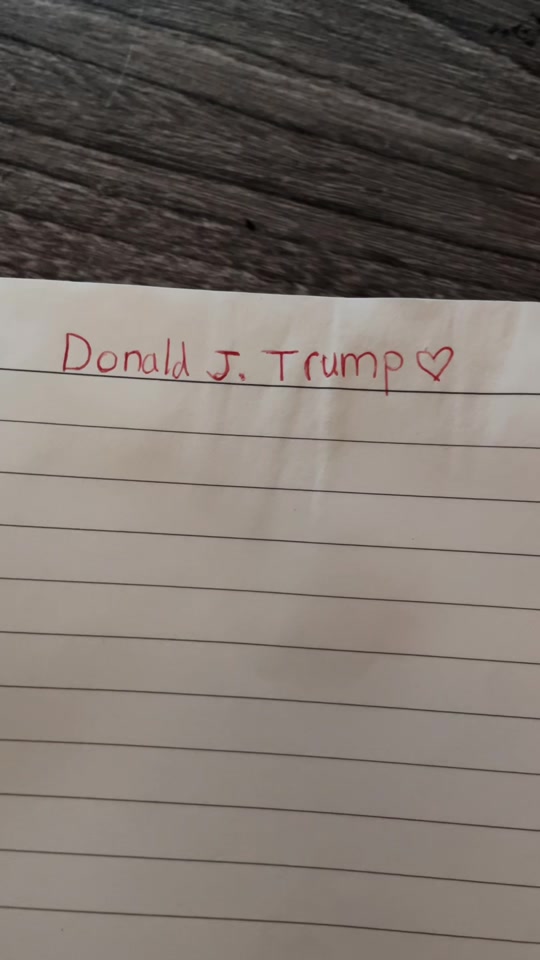 Donald J. Trump♡